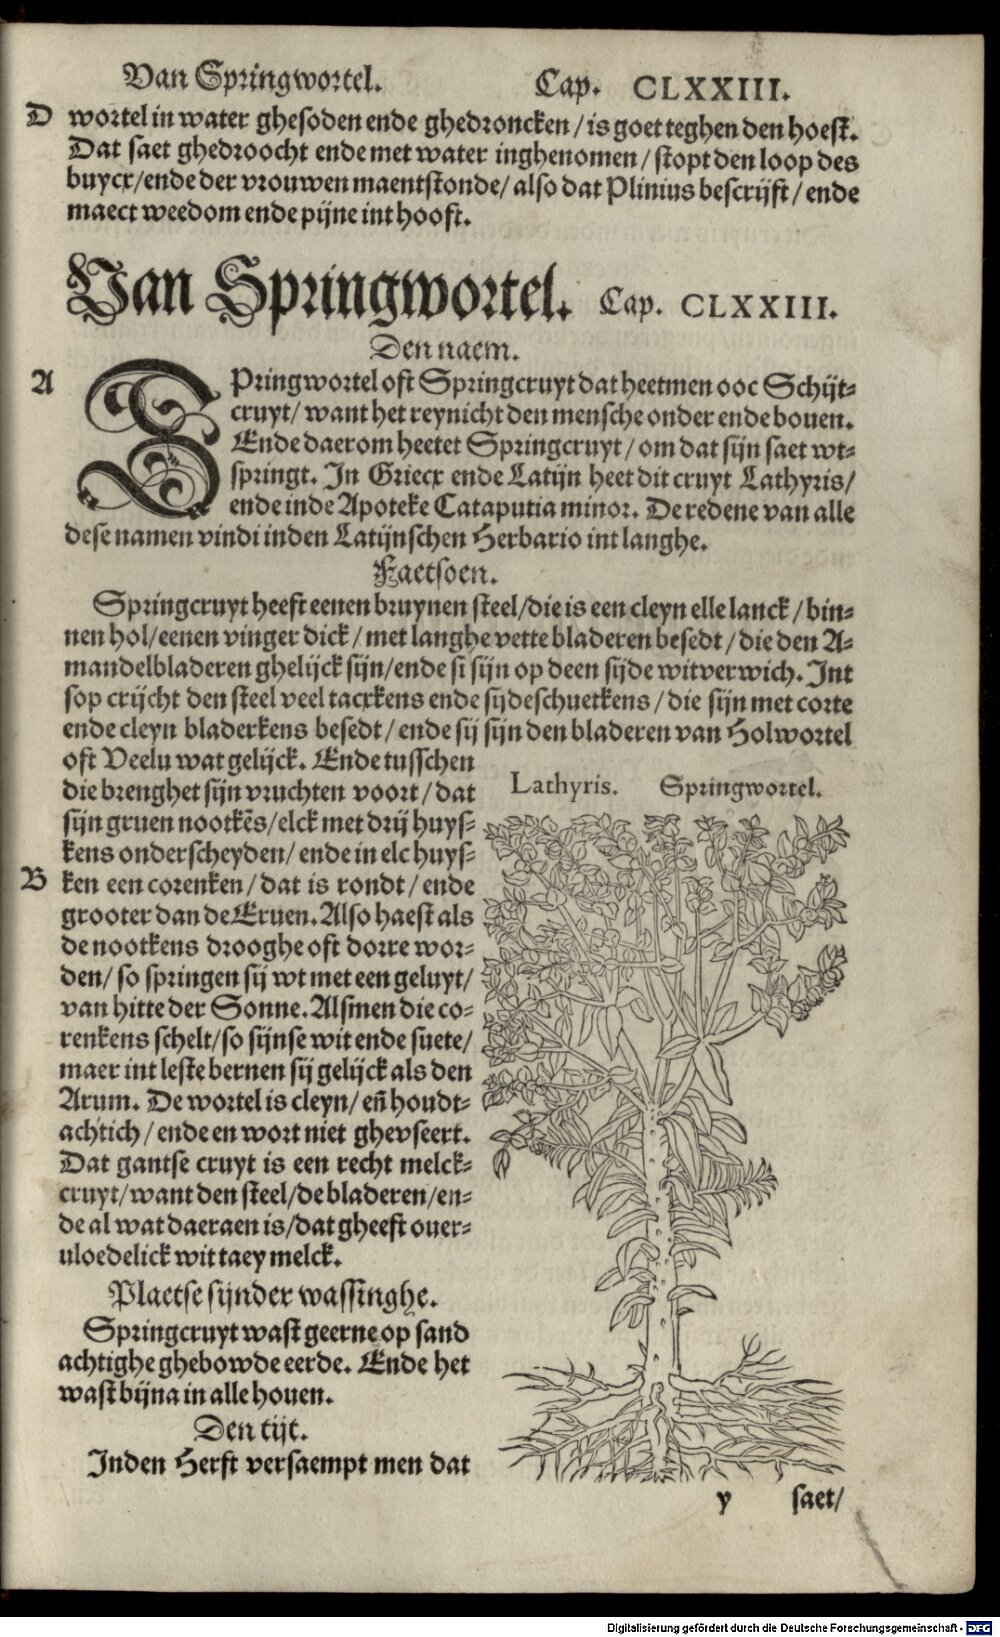 Van Springwortel. Cap. CLXXIII.
D wortel in water ghesoden ende ghedroncken / is goet teghen den hoest.
Dat saet ghedroocht ende met water inghenomen / stopt den loop des
buycx / ende der vrouwen maentstonde / also dat Plinius bescrijft / ende
maect weedom ende pijne int hooft.
Van Springwortel. Cap. CLXXIII.
Den naem.
A SPringwortel oft Springcruyt dat heetmen ooc Schijt-
cruyt / want het reynicht den mensche onder ende bouen.
Ende daerom heetet Springcruyt / om dat sijn saet wt-
springt. In Griecx ende Latijn heet dit cruyt Lathyris /
ende inde Apoteke Cataputia minor. De redene van alle
dese namen vindi inden Latijnschen Herbario int langhe.
Faetsoen.
Springcruyt heeft eenen bruynen steel / die is een cleyn elle lanck / bin-
nen hol / eenen vinger dick / met langhe vette bladeren besedt / die den A-
mandelbladeren ghelijck sijn / ende si sijn op deen sijde witverwich. Int
sop crijcht den steel veel tacxkens ende sijdeschuetkens / die sijn met corte
ende cleyn bladerkens besedt / ende sij sijn den bladeren van Holwortel
oft Veelu wat gelijck. Ende tusschen
die brenghet sijn vruchten voort / dat
sijn gruen nootkēs / elck met drij huys-
kens onderscheyden / ende in elc huys-
B ken een corenken / dat is rondt / ende
grooter dan de Eruen. Also haest als
de nootkens drooghe oft dorre wor-
den / so springen sij wt met een geluyt /
van hitte der Sonne. Alsmen die co-
renkens schelt / so sijnse wit ende suete /
maer int leste bernen sij gelijck als den
Arum. De wortel is cleyn / eñ houdt-
achtich / ende en wort niet ghevseert.
Dat gantse cruyt is een recht melck-
cruyt / want den steel / de bladeren / en-
de al wat daeraen is / dat gheeft ouer-
uloedelick wit taey melck.
Plaetse sijnder wassinghe.
Springcruyt wast geerne op sand
achtighe ghebowde eerde. Ende het
wast bijna in alle houen.
Den tijt.
Inden Herfst versaempt men dat
Lathyris. Springwortel.
y saet /
Digitalisierung gefördert durch die Deutsche Forschungsgemeinschaft - DFG